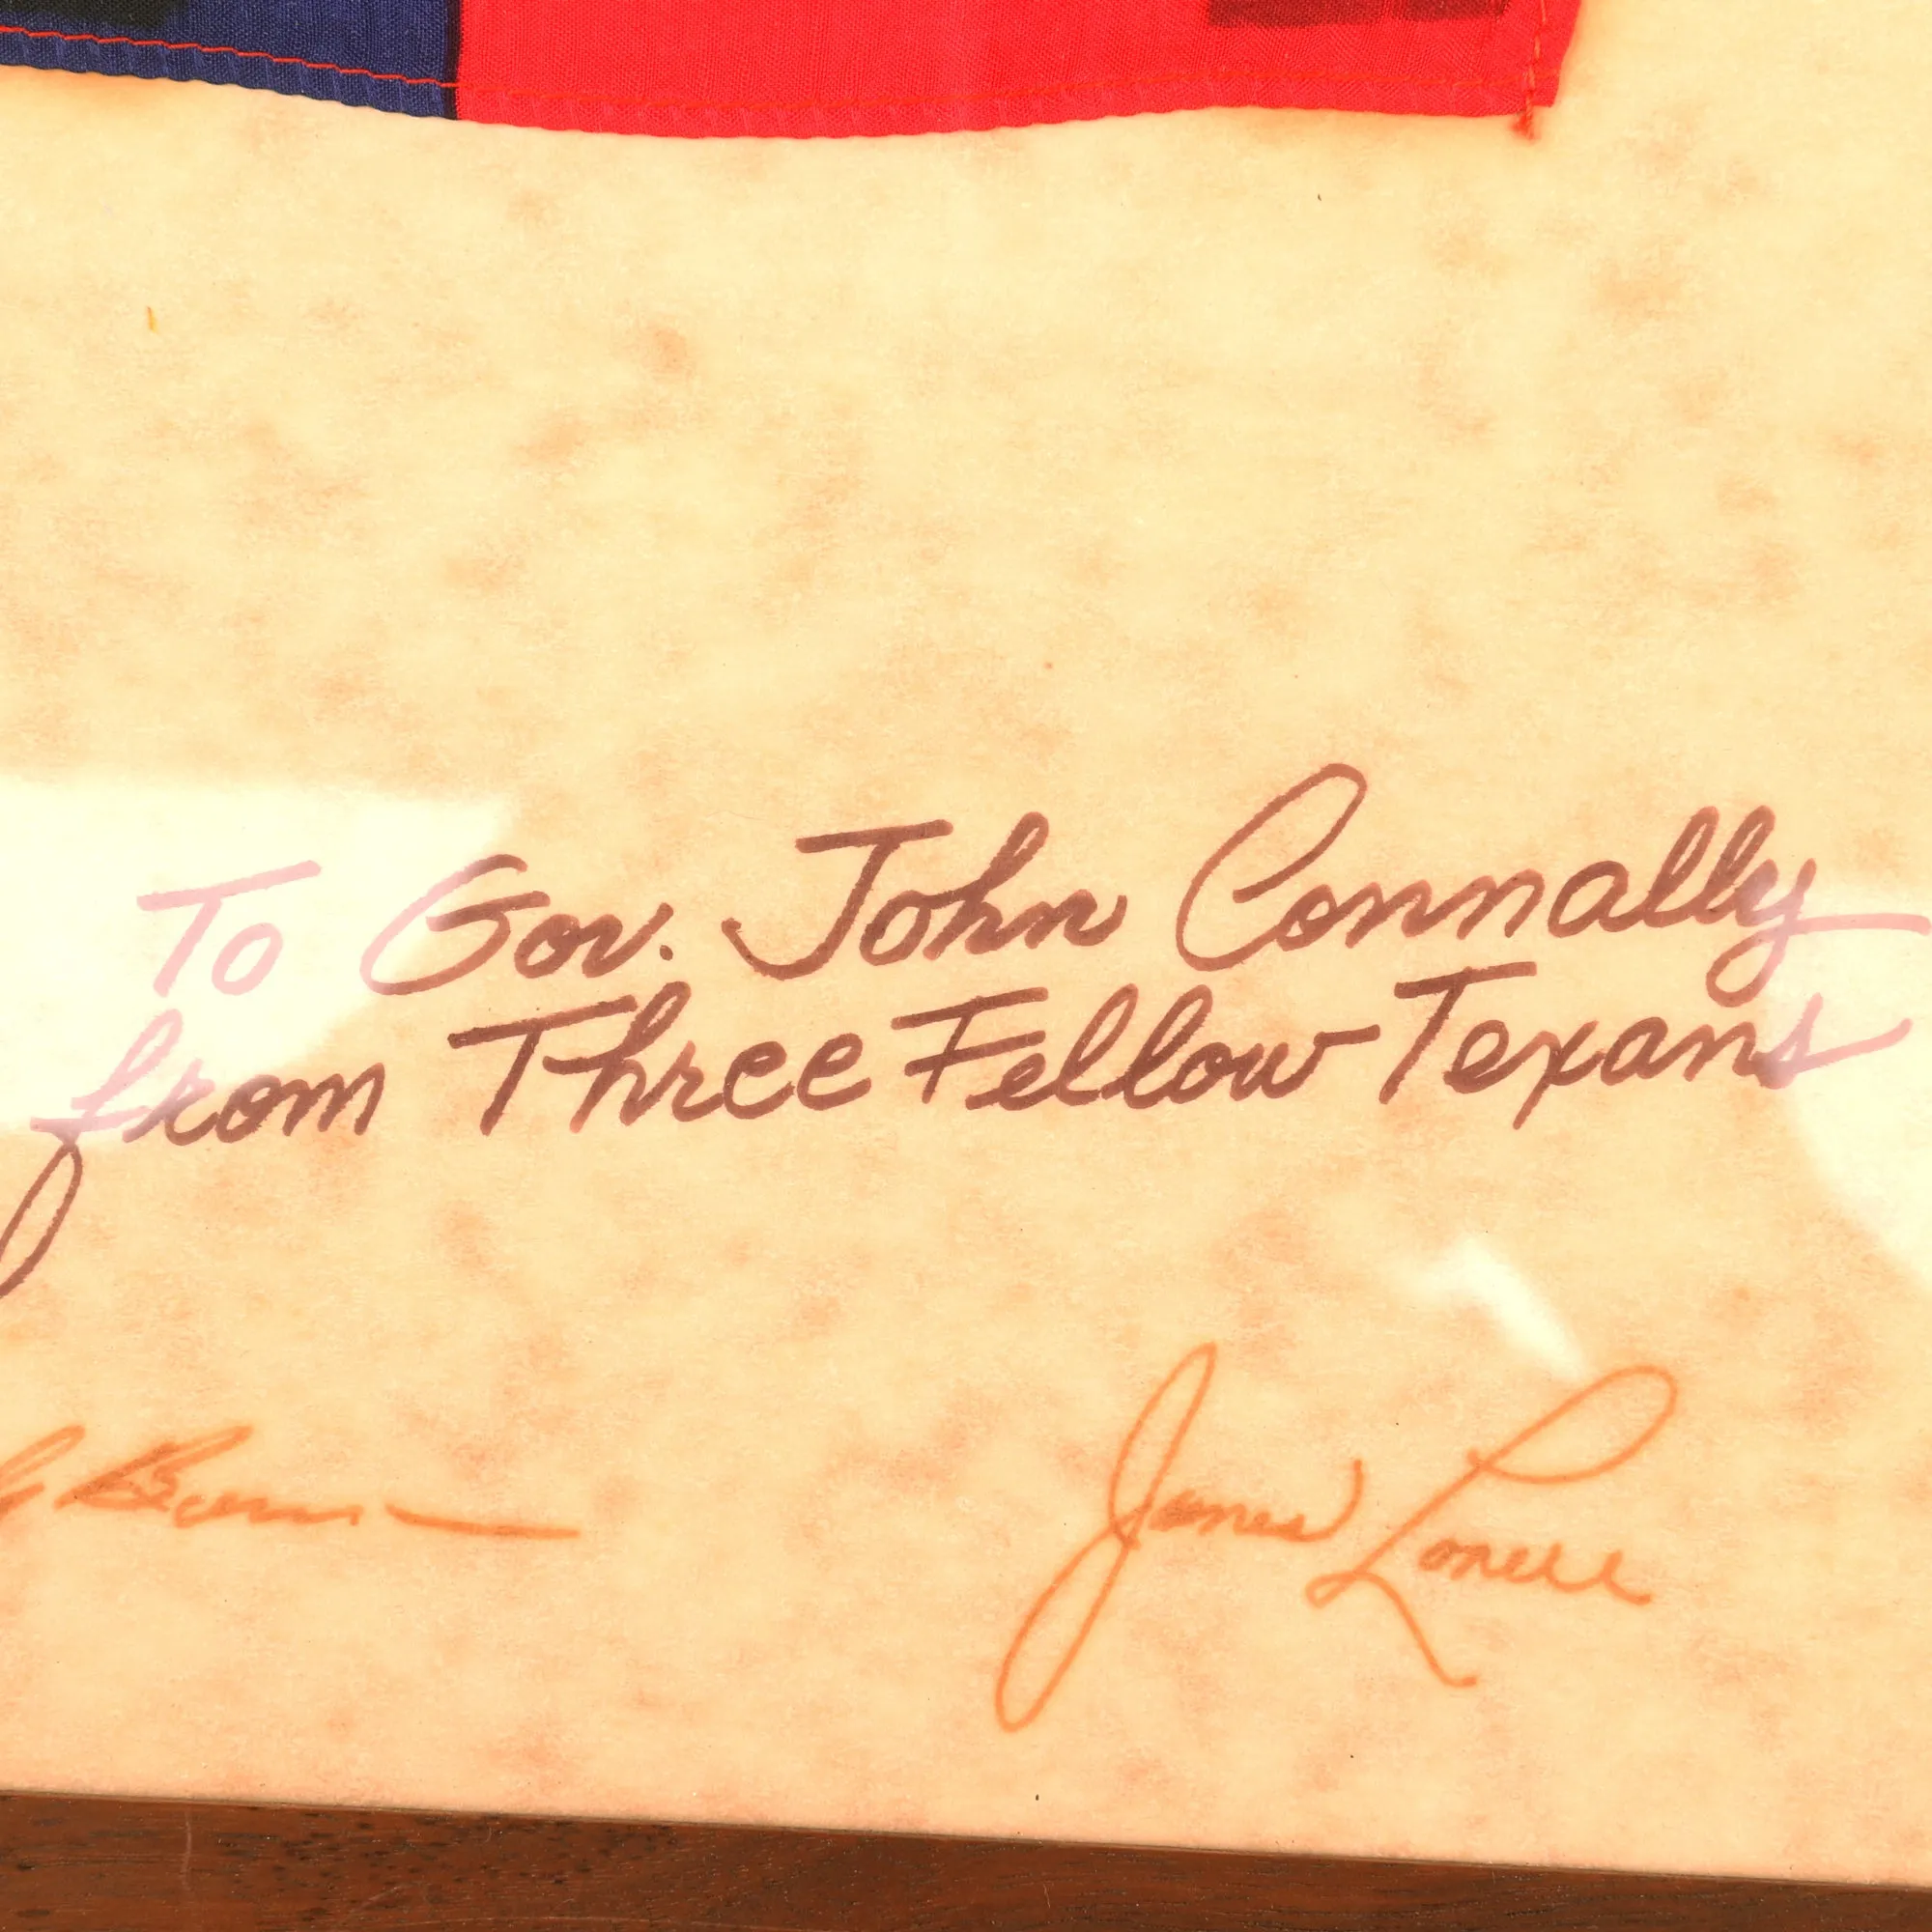 To Gov. John Connally
from Three Fellow Texans
James Lovell